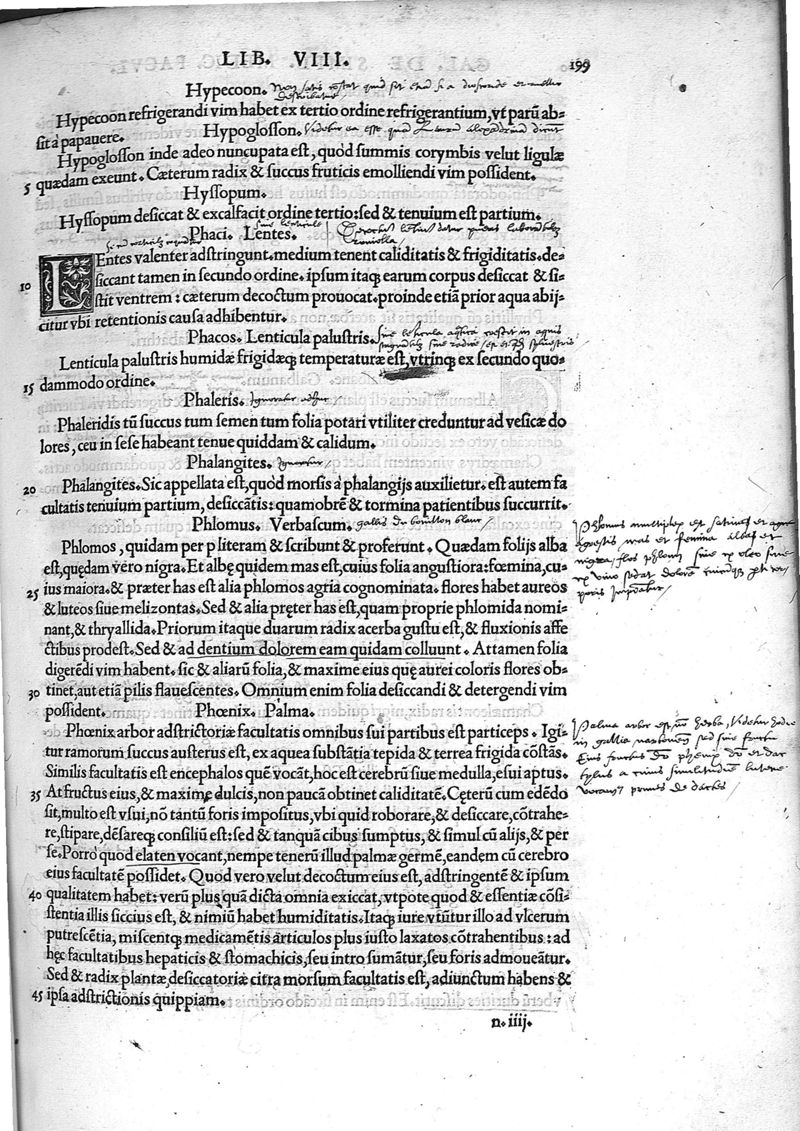 LIB. VIII. 199
Hypecoon.
Hypecoon refrigerandi vim habet ex tertio ordine refrigerantium, vt parū ab-
sit à papauere. Hypoglosson.
Hypoglosson inde adeo nuncupata est, quòd summis corymbis velut ligulæ
5 quædam exeunt. Cæterum radix & succus fruticis emolliendi vim possident.
Hyssopum.
Hyssopum desiccat & excalfacit ordine tertio: sed & tenuium est partium.
Phaci. Lentes.
LEntes valenter adstringunt. medium tenent caliditatis & frigiditatis. de-
10 siccant tamen in secundo ordine. ipsum itaq; earum corpus desiccat & si-
stit ventrem: cæterum decoctum prouocat. proinde etiā prior aqua abij-
citur vbi retentionis causa adhibentur.
Phacos. Lenticula palustris.
Lenticula palustris humidæ frigidæq; temperaturæ est, vtrinq; ex secundo quo-
15 dammodo ordine.
Phaleris.
Phaleridis tū succus tum semen tum folia potari vtiliter creduntur ad vesicæ do
lores, ceu in sese habeant tenue quiddam & calidum.
Phalangites.
20 Phalangites. Sic appellata est, quòd morsis à phalangijs auxilietur. est autem fa
cultatis tenuium partium, desiccātis: quamobrē & tormina patientibus succurrit.
Phlomus. Verbascum. gallis du bouillon blanc
Phlomos, quidam per p literam & scribunt & proferunt. Quædam folijs alba
est, quędam vero nigra. Et albę quidem mas est, cuius folia angustiora: fœmina, cu-
25 ius maiora. & præter has est alia phlomos agria cognominata. flores habet aureos
& luteos siue melizontas. Sed & alia pręter has est, quam proprie phlomida nomi-
nant, & thryallida. Priorum itaque duarum radix acerba gustu est, & fluxionis affe
ctibus prodest. Sed & ad dentium dolorem eam quidam colluunt. Attamen folia
digerēdi vim habent. sic & aliarū folia, & maxime eius quę aurei coloris flores ob-
30 tinet, aut etiā pilis flauescentes. Omnium enim folia desiccandi & detergendi vim
possident. Phœnix. Palma.
Phœnix arbor adstrictoriæ facultatis omnibus sui partibus est particeps. Igi-
tur ramorum succus austerus est, ex aquea substātia tepida & terrea frigida cōstās.
Similis facultatis est encephalos quē vocāt, hoc est cerebrū siue medulla, esui aptus.
35 At fructus eius, & maxime dulcis, non paucā obtinet caliditatē. Cęterū cum edēdo
sit, multo est vsui, nō tantū foris impositus, vbi quid roborare, & desiccare, cōtrahe-
re, stipare, dēsareq; consiliū est: sed & tanquā cibus sumptus, & simul cū alijs, & per
se. Porrò quod elaten vocant, nempe tenerū illud palmæ germē, eandem cū cerebro
eius facultatē possidet. Quod vero velut decoctum eius est, adstringentē & ipsum
40 qualitatem habet: verū plus quā dicta omnia exiccat, vtpote quod & essentiæ cōsi-
stentia illis siccius est, & nimiū habet humiditatis. Itaq; iure vtūtur illo ad vlcerum
putrescētia, miscentq; medicamētis articulos plus iusto laxatos cōtrahentibus: ad
hęc facultatibus hepaticis & stomachicis, seu intro sumātur, seu foris admoueātur.
Sed & radix plantæ, desiccatoriæ citra morsum facultatis est, adiunctum habens &
45 ipsa adstrictionis quippiam.
n. iiij.